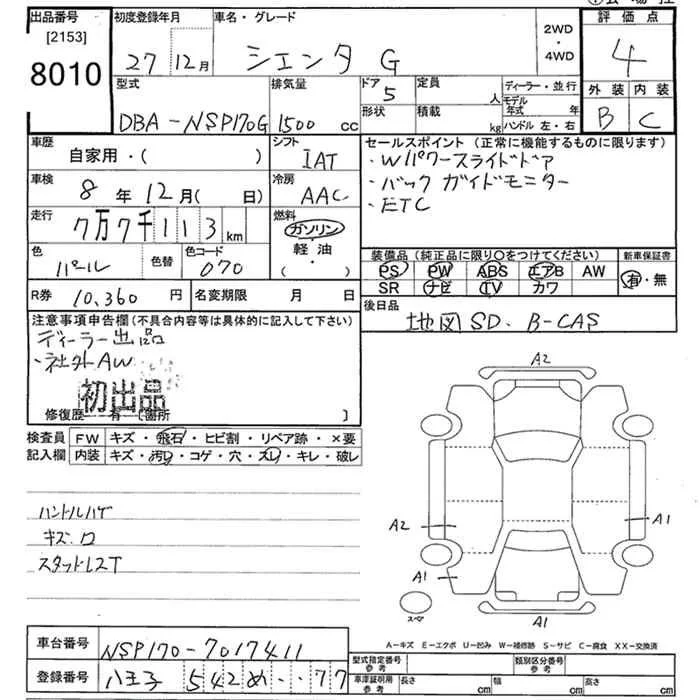 出品番号 初度登録年月 車名・グレード 評価点
[2153]
8010 27 12月 シエンタ G 2WD・4WD 4
型式 排気量 ドア 5 定員 人 ディーラー・並行 外装 内装
DBA-NSP170G 1500 cc 形状 積載 kg モデル年式 年 ハンドル 左・右 B C
車歴 自家用・( ) シフト IAT セールスポイント (正常に機能するものに限ります)
・Wパワースライドドア
車検 8年 12月( 日) 冷房 AAC ・バックガイドモニター
・ETC
走行 7万7千113km 燃料 ガソリン・軽油・( )
色 パール 色替 色コード 070 装備品 (純正品に限り○をつけてください) 新車保証書
PS PW ABS エアB AW 有・無
SR ナビ TV カワ
R券 10,360円 名変期限 月 日 後日品
地図SD. B-CAS
注意事項申告欄(不具合内容等は具体的に記入して下さい)
ディーラー出品
・社外AW
初出品
修復歴 有 [箇所 ]
検査員 FW キズ・飛石・ヒビ割・リペア跡・×要
記入欄 内装 キズ・汚レ・コゲ・穴・スレ・キレ・破レ
ハンドルハゲ
キズ.ワ
スタッドレスT
A2
A2 A1
A1
A1
スペア
A-キズ E-エクボ U-凹み W-補修跡 S-サビ C-腐食 XX-交換済
車台番号 NSP170-7017411
登録番号 八王子 542 め ・・77
型式指定番号 参考 類別区分番号 参考
車庫証明用 参考 長さ cm 幅 cm 高さ cm